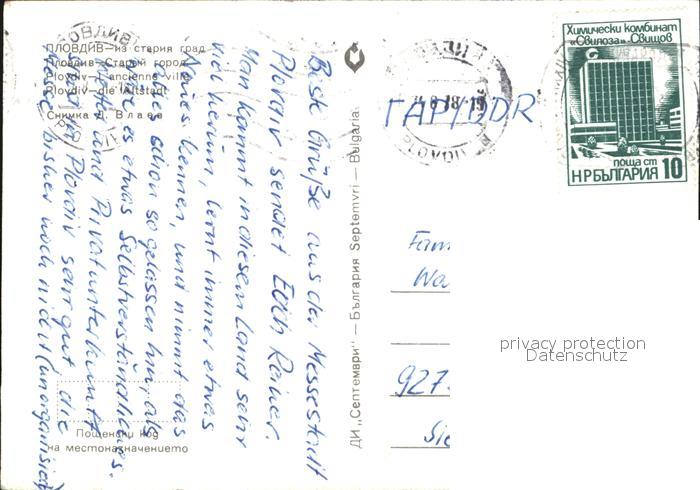 ПЛОВДИВ—из стария град
Пловдив—Старый город
Plovdiv—L'ancienne ville
Plovdiv—die Altstadt
Снимка Д. Влаев
Beste Grüße aus der Messestadt
Plovdiv sendet Reiner.
Man kommt in diesem Land sehr
viel herum, lernt immer etwas
Neues kennen, und nimmt das
alles schon so gelassen hin, als
wäre es etwas Selbstverständliches.
und Privatunterkunft
sind in Plovdiv sehr gut, die
bisher noch nicht (unorganisiert)
Пощенски код
на местоназначението
ДИ „Септември" — България Septemvri — Bulgaria
ПЛОВДИВ
PLOVDIV
ГДР/DDR
Химически комбинат
«Свилоза» Свищов
поща ст
НР БЪЛГАРИЯ 10
Fam
927.
privacy protection
Datenschutz